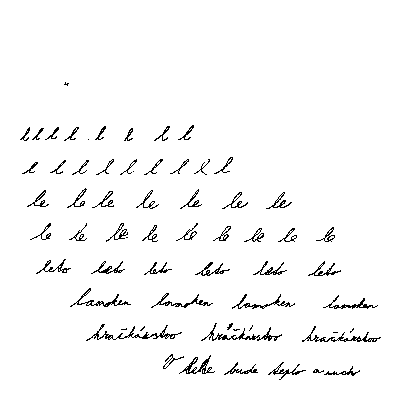 l l l l l l l l
l l l l l l l l l
le le le le le le le le
le le le le le le le le le
leto leto leto leto leto leto
lamoken lamoken lamoken lamoken
hračkárstvo hračkárstvo hračkárstvo
V lete bude teplo a